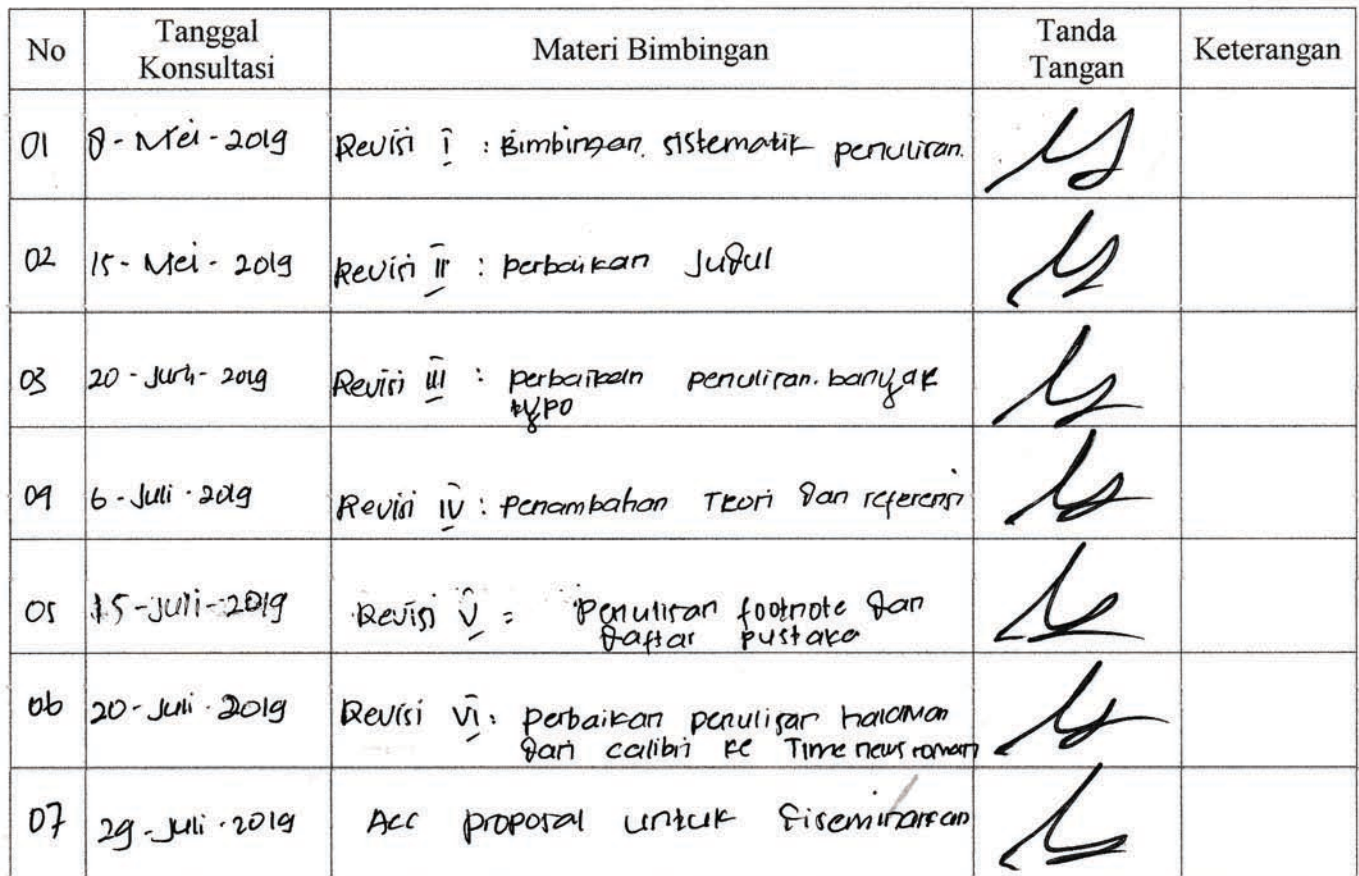 No Tanggal Konsultasi Materi Bimbingan Tanda Tangan Keterangan
01 8 - Mei - 2019 Revisi I : Bimbingan sistematik penulisan.
02 15 - Mei - 2019 Revisi II : perbaikan Judul
03 20 - Juni - 2019 Revisi III : perbaikan penulisan. banyak
typo
04 6 - Juli - 2019 Revisi IV : penambahan Teori dan referensi
05 15 - Juli - 2019 Revisi V : Penulisan footnote dan
daftar pustaka
06 20 - Juli - 2019 Revisi VI : perbaikan penulisan halaman
dari calibri ke Time news roman
07 29 - Juli - 2019 Acc proposal untuk diseminarkan